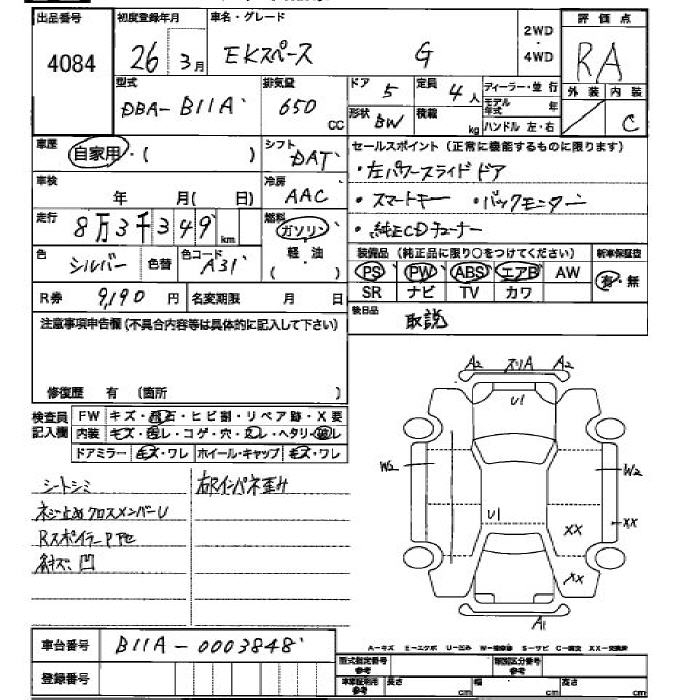 出品番号 初度登録年月 車名・グレード 2WD 評価点
4084 26 3月 EKスペース G ・4WD RA
型式 排気量 ドア 5 定員 4人 ディーラー・並行 外装 内装
DBA-B11A 650 CC 形状 BW 積載 kg モデル年式 年 ハンドル 左・右 C
車歴 自家用・( ) シフト DAT セールスポイント(正常に機能するものに限ります)
・左パワースライドドア
車検 年 月( 日) 冷房 AAC ・スマートキー ・バックモニター
走行 8万3千349km 燃料 ガソリン ・純正CDチューナー
軽・油
( )
色 シルバー 色替 色コード A31 装備品(純正品に限り○をつけてください) 新車保証書
PS PW ABS エアB AW 有・無
R券 9,190円 名変期限 月 日 SR ナビ TV カワ
注意事項申告欄(不具合内容等は具体的に記入して下さい) 後日品 取説
修復歴 有 (箇所 )
検査員記入欄 FW キズ・飛石・ヒビ割・リペア跡・X要
内装 キズ・汚レ・コゲ・穴・スレ・ヘタリ・破レ
ドアミラー キズ・ワレ ホイール・キャップ キズ・ワレ
シートシミ 右Rインパネ歪み
ネジ止めクロスメンバーU
Rスポイラー
キズ、凹
A2 スリA A2
U1
W2 W2
U1 XX
XX
XX
A1
車台番号 B11A-0003848
A-キズ E-エクボ U-凹ミ W-補修跡 S-サビ C-腐食 XX-交換済
登録番号 型式指定番号 参考 類別区分番号 参考
車庫証明用 参考 長さ cm 幅 cm 高さ cm